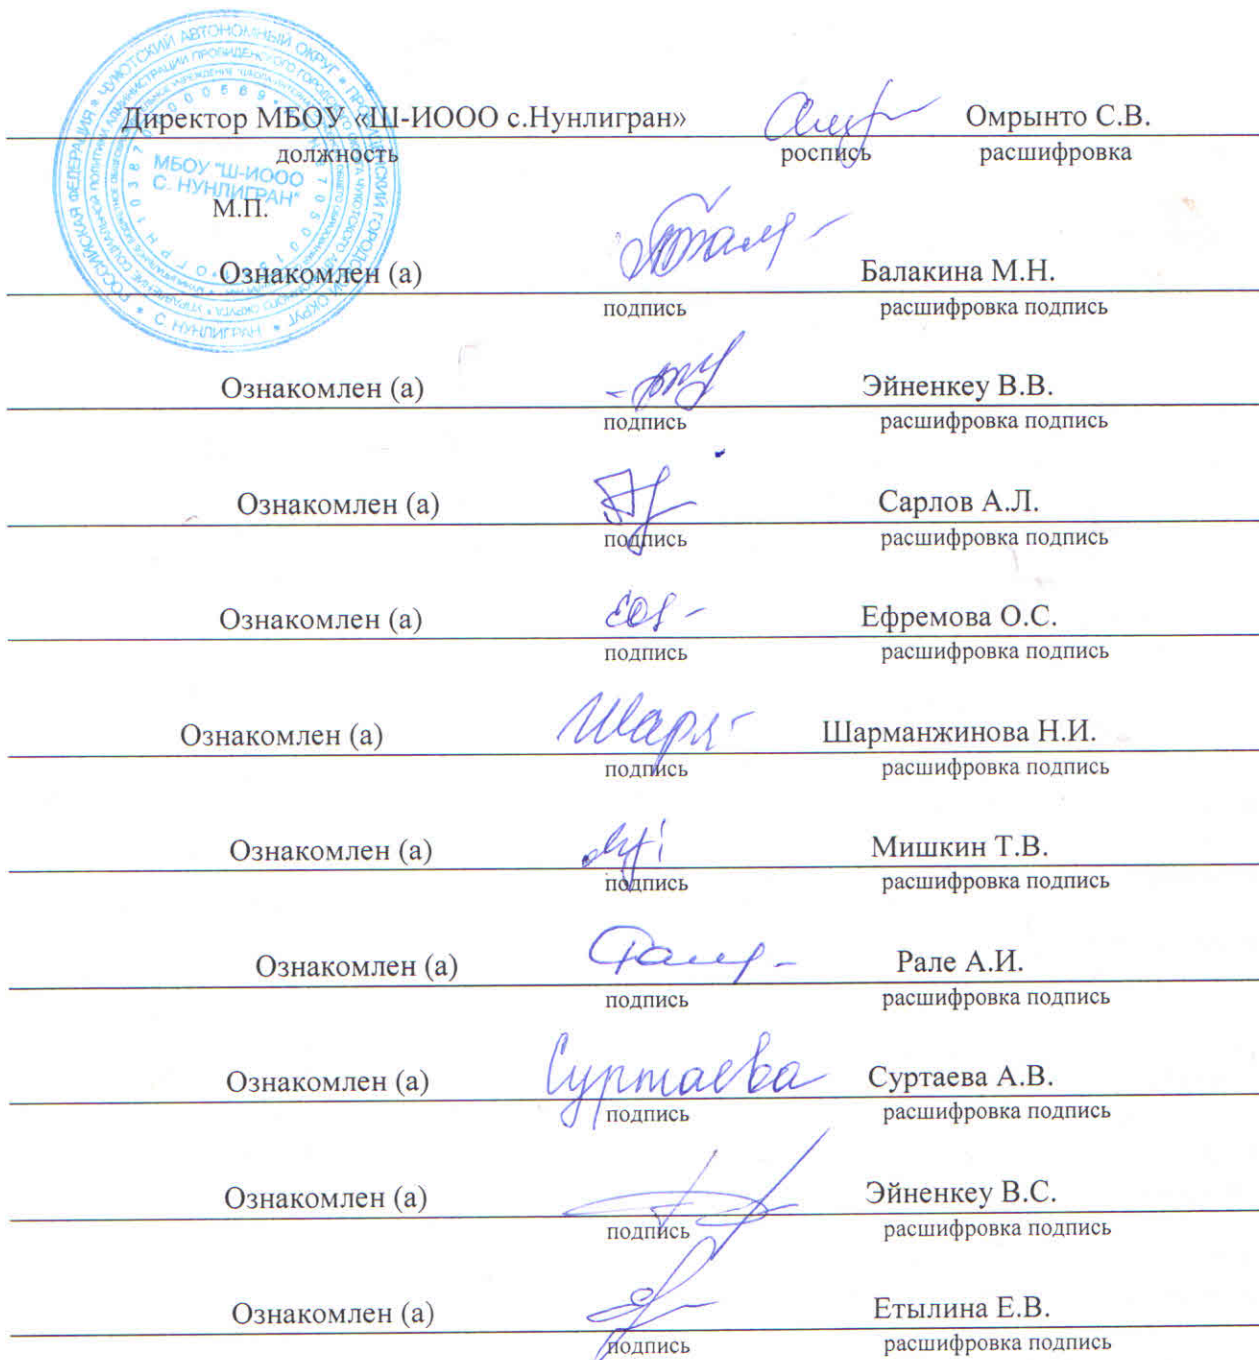 Директор МБОУ «Ш-ИООО с.Нунлигран» Омрынто С.В.
должность роспись расшифровка
МБОУ "Ш-ИООО
С. НУНЛИГРАН"
РОССИЙСКАЯ ФЕДЕРАЦИЯ * ЧУКОТСКИЙ АВТОНОМНЫЙ ОКРУГ * ПРОВИДЕНСКИЙ ГОРОДСКОЙ ОКРУГ * С. НУНЛИГРАН *
М.П.
Ознакомлен (а) Балакина М.Н.
подпись расшифровка подпись
Ознакомлен (а) Эйненкеу В.В.
подпись расшифровка подпись
Ознакомлен (а) Сарлов А.Л.
подпись расшифровка подпись
Ознакомлен (а) Ефремова О.С.
подпись расшифровка подпись
Ознакомлен (а) Шарманжинова Н.И.
подпись расшифровка подпись
Ознакомлен (а) Мишкин Т.В.
подпись расшифровка подпись
Ознакомлен (а) Рале А.И.
подпись расшифровка подпись
Ознакомлен (а) Суртаева Суртаева А.В.
подпись расшифровка подпись
Ознакомлен (а) Эйненкеу В.С.
подпись расшифровка подпись
Ознакомлен (а) Етылина Е.В.
подпись расшифровка подпись